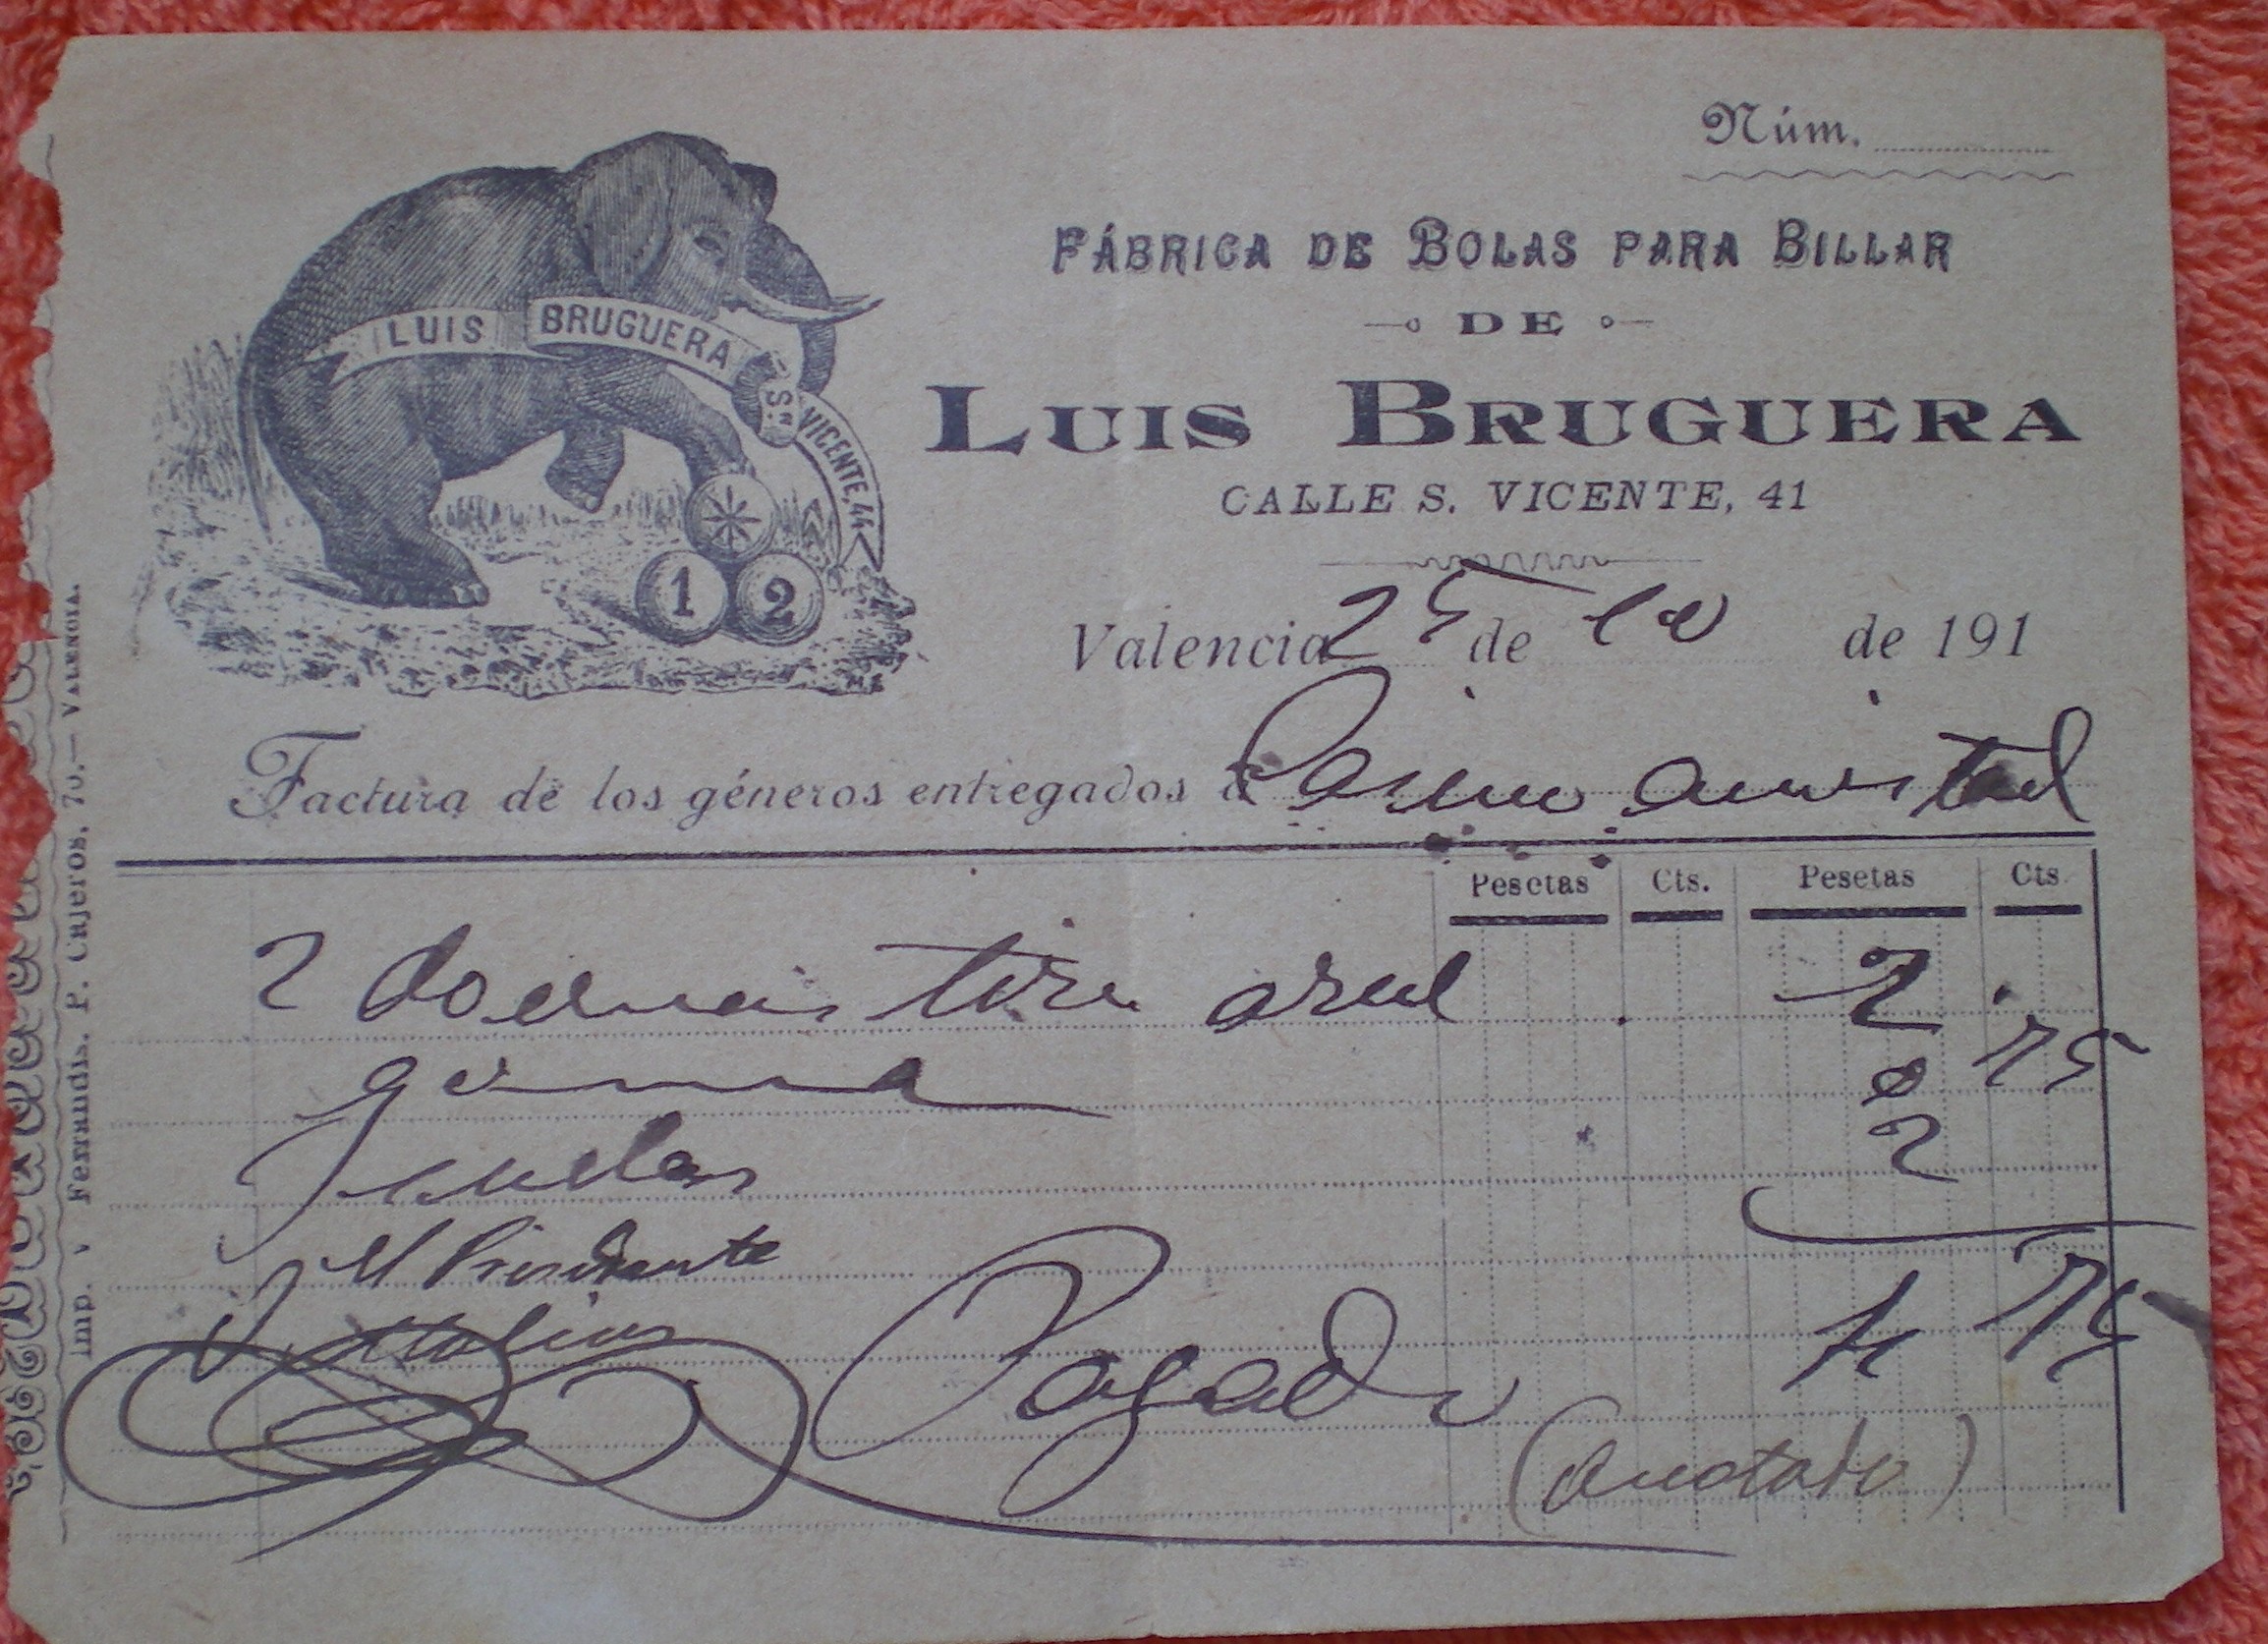 Núm.
FÁBRICA DE BOLAS PARA BILLAR
DE
LUIS BRUGUERA
CALLE S. VICENTE, 41
LUIS BRUGUERA
Sn VICENTE, 44
1 2
Valencia 25 de 10 de 191
Factura de los géneros entregados á Casino amistad
Pesetas Cts. Pesetas Cts
2 docenas tiza azul 2
goma 0 75
2
El Presidente
4 75
Pagado
(Anotado)
Imp. y Ferrandis. P. Cajeros. 70.— VALENCIA.